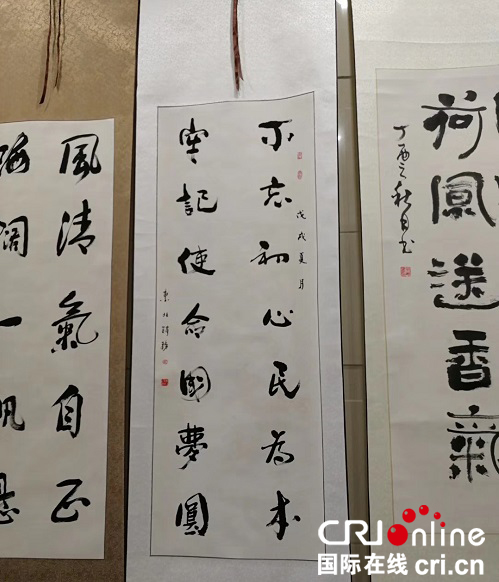 荷風送香氣
丁酉之秋月书
不忘初心民为本
戊戌夏月
牢記使命國夢圓
風清氣自正
海阔一帆悬
CRIOnline
国际在线 cri.cn